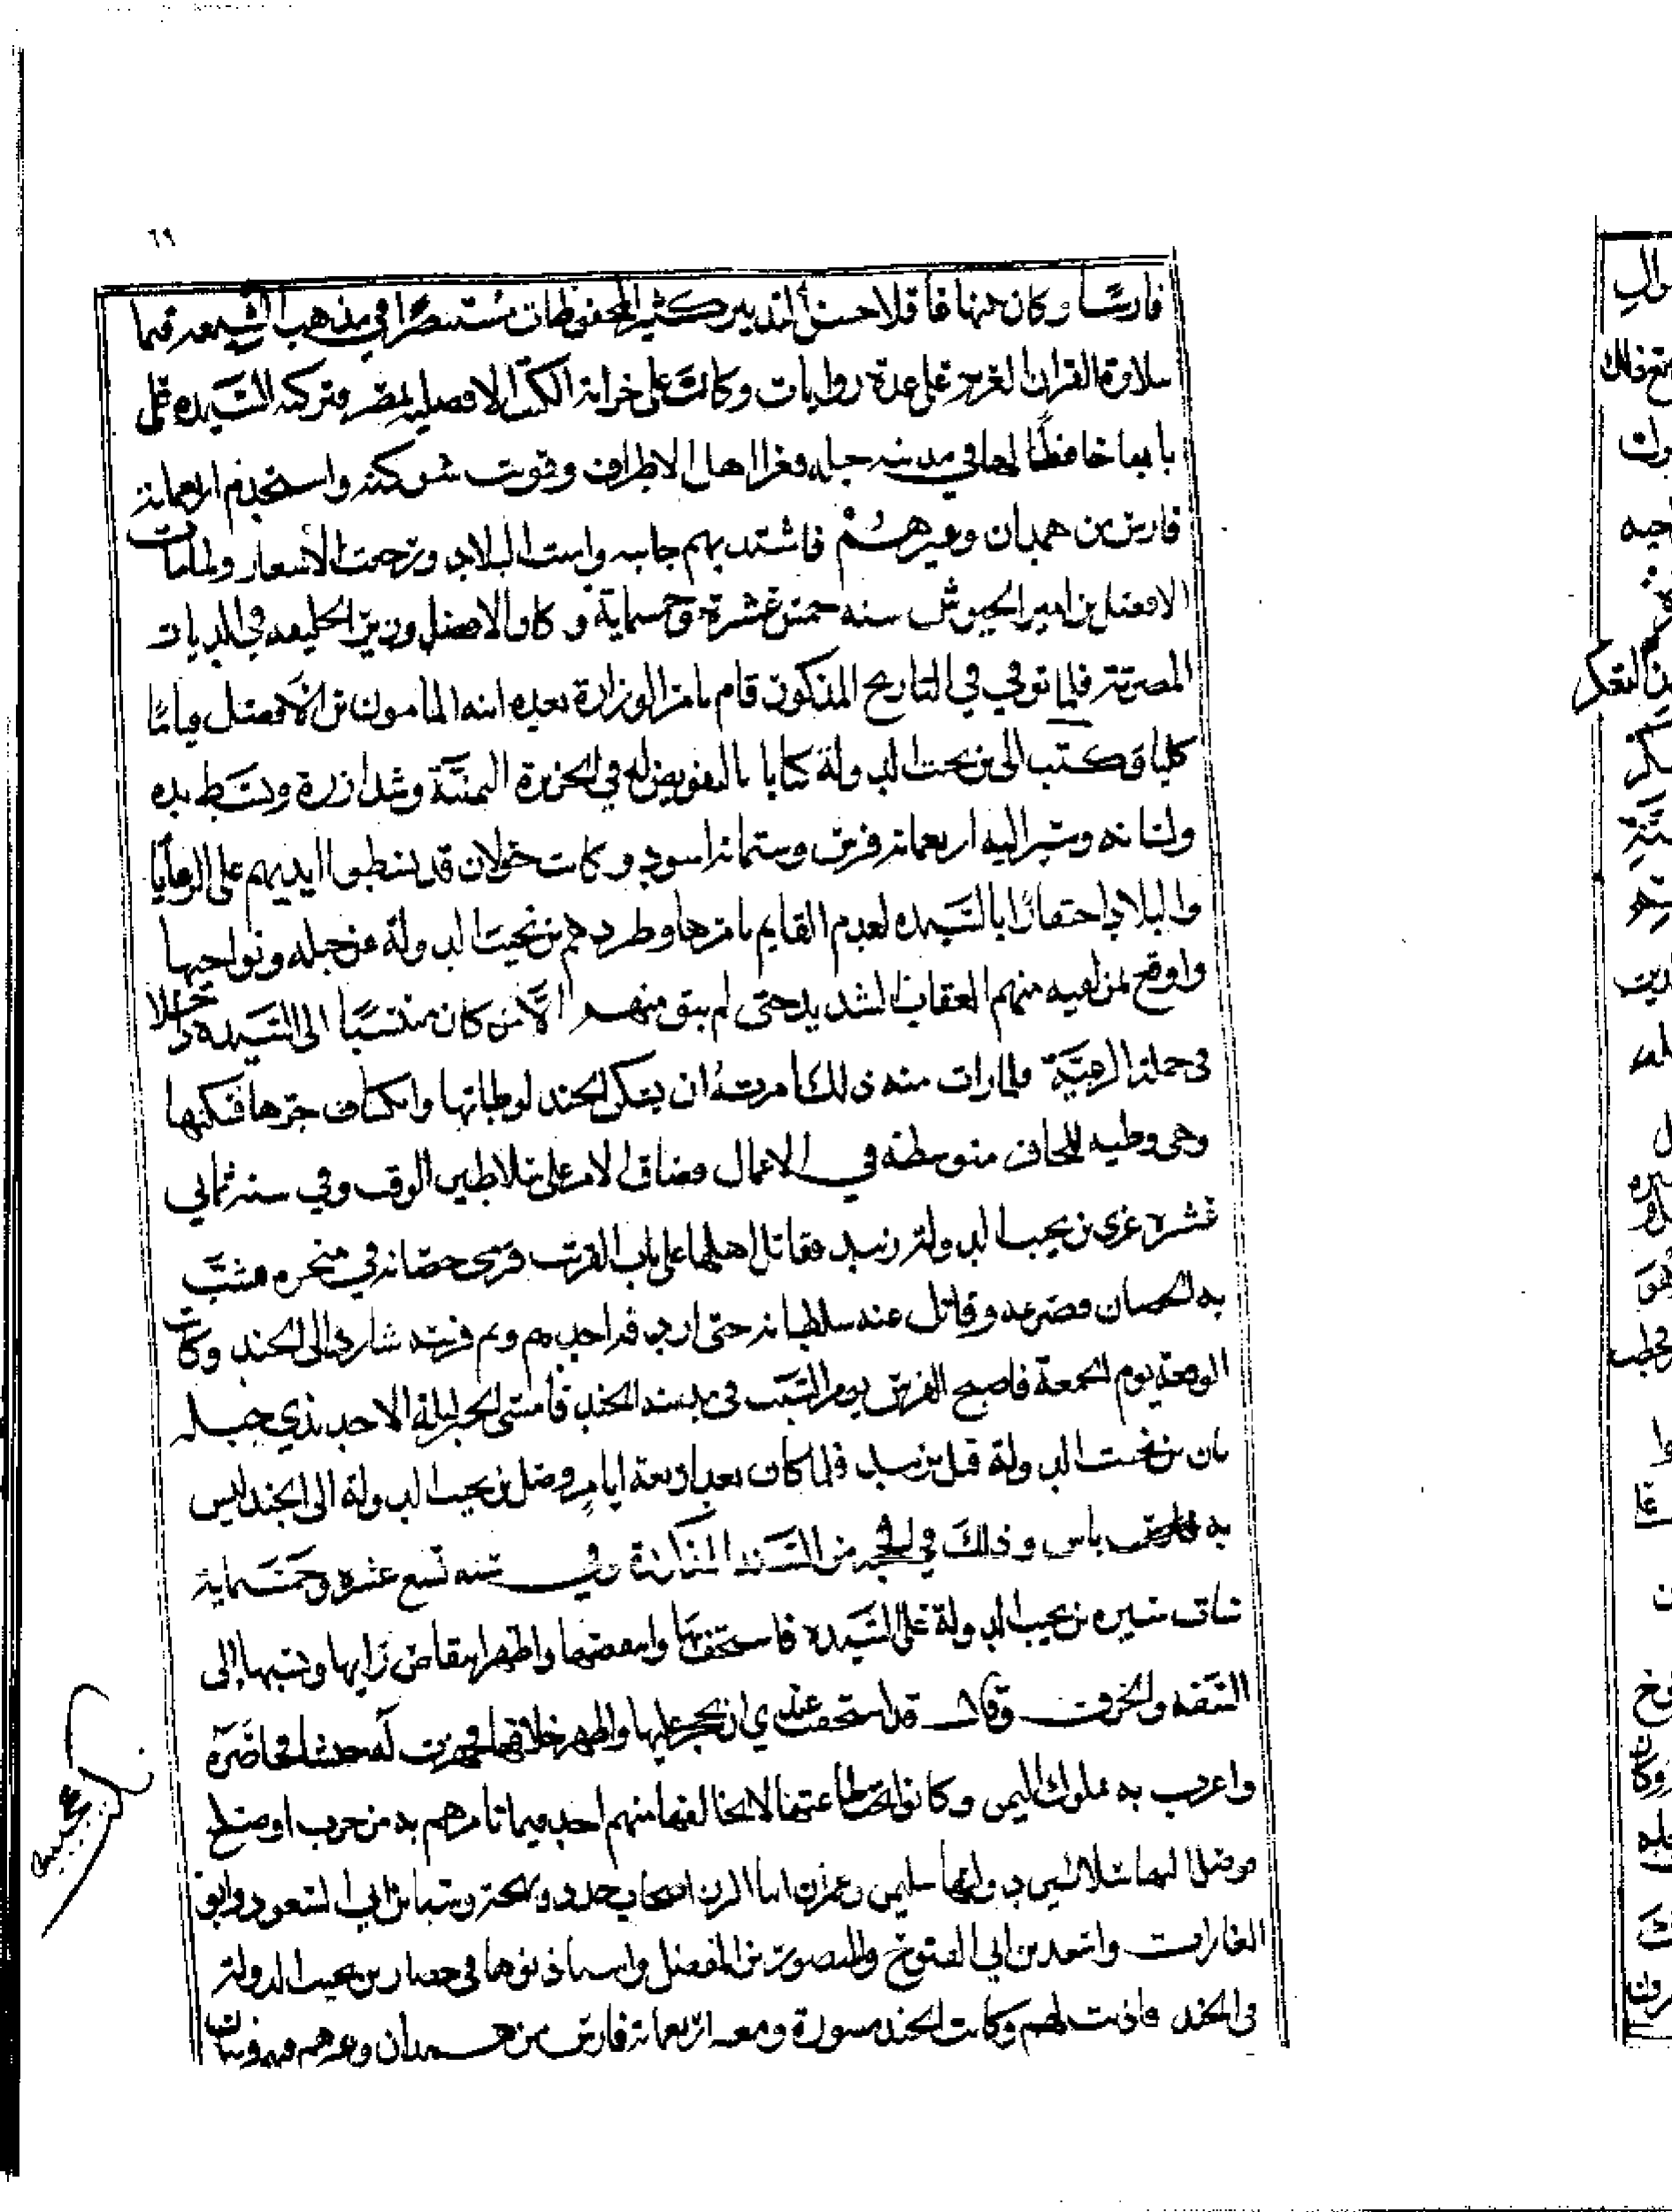 ٦٩
فارسًا وكان شهما عاقلا حسن التدبير كثير المحفوظات مستبصرًا في مذهب الشيعه قيما
بتلاوة القران يقرا على عدة روايات وكانت على خزانة الكتب الافضلية بمصر وتركته السيده على
بابها حافظًا لها في مدينه جبله فغزا اهل الاطراف وقويت شوكته واستخدم اربعمائة
فارس من همدان وغيرهم فاشتد بهم جانبه وامنت البلاد ورخصت الأسعار ولما مات
الافضل بن امير الجيوش سنه خمس عشرة وخمسماية وكان الافضل وزير الخليفه في الديات
المصرية فلما توفي في التاريخ المذكور قام بامر الوزارة بعده ابنه المامون بن الافضل قيامًا
كليا وكتب الى بن نجيب الدولة كتابا بالتفويض له في الجزيرة اليمنية وشد ازره وبسط يده
ولسانه وسير اليه اربعمائة فرس وستمائة اسود وكانت خولان قد بسطوا ايديهم على الرعايا
والبلاد احتقارًا بالسيده لعدم القايم بامرها وطردهم بن نجيب الدولة عن جبله ونواحيها
واوقع بمن لقيه منهم العقاب الشديد حتى لم يبق منهم الا من كان منتسبًا الى السيدة داخلا
في جملة الرعية فلما رات منه ذلك امرته ان يسكن الجند لوطاتها وانكشاف حرها فسكنها
وهي وطيه للحافر متوسطه في الاعمال فضاق الامر على سلاطين الوقت وفي سنة ثماني
عشره غزى بن نجيب الدولة زبيد فقاتل اهلها على باب القرتب فرمى حصانه في منخره فشب
به الحصان فصرعه وقاتل عنه سلاطانه حتى اردفه احدهم وتم فرسه شاردا الى الجند وكانت
الوقعة يوم الجمعة فاصبح الفرس يوم السبت في مدينه الجند فامسى الخبر ليلة الاحد بذي جبله
بان بن نجيب الدولة قتل بزبيد فلما كان بعد اربعة ايام وصل بن نجيب الدولة الى الجند ليس
به باس وذلك في من السنه المذكورة وفي سنه تسع عشره وخمسماية
سات سيره بن نجيب الدولة على السيده فاستخف بها وابغضها واظهر انتقاص رايها ونسبها الى
السفه والخرف وقال قد استحقت عندي ان يحجر عليها واظهر خلافها فجهزت له جيشا لمحاصرة
واغرت به ملوك اليمن وكانوا تحت طاعتها لا يخالفها منهم احد فيما تامرهم به من حرب او صلح
فوصل اليها سلاطين دولتها سليمن وعمران ابنا الزر اصحاب خدد وسبا بن ابي السعود وابو
الغارات واسعد بن ابي الفتوح والمنصور بن المفضل واستاذنوها في حصار بن نجيب الدولة
في الجند فاذنت لهم وكانت الجند مسورة ومعه اربعمائة فارس من همدان وغيرهم